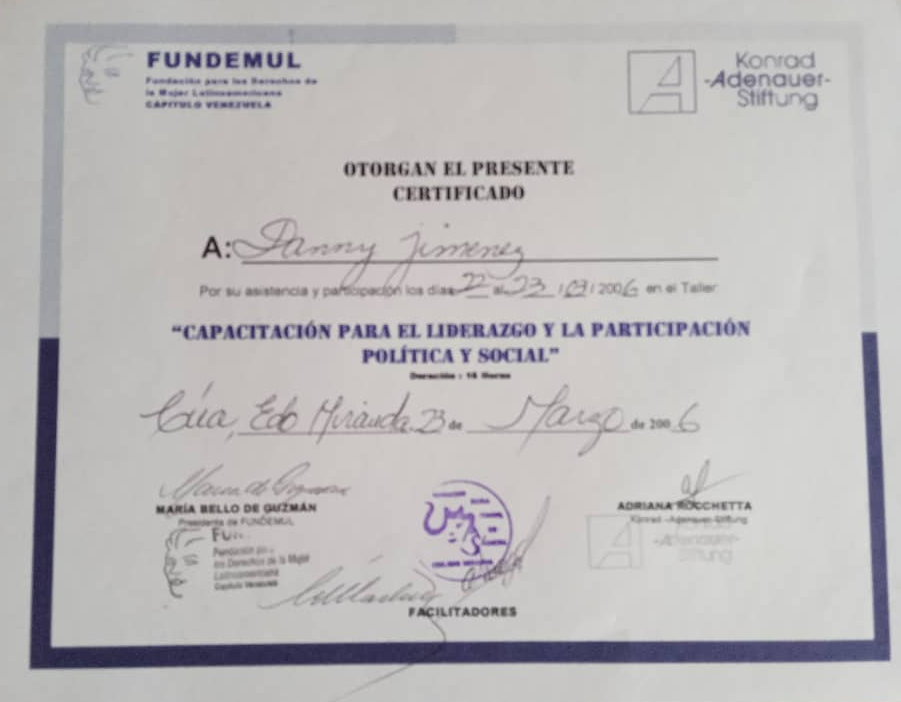 FUNDEMUL
Fundación para los Derechos de
la Mujer Latinoamericana
CAPITULO VENEZUELA
Konrad
-Adenauer-
Stiftung
OTORGAN EL PRESENTE
CERTIFICADO
A: Danny Jimenez
Por su asistencia y participación los días 22 al 23 / 03 / 2006 en el Taller:
"CAPACITACIÓN PARA EL LIDERAZGO Y LA PARTICIPACIÓN
POLÍTICA Y SOCIAL"
Duración : 16 Horas
Cúa, Edo Miranda, 23 de Marzo de 2006
MARÍA BELLO DE GUZMÁN
Presidenta de FUNDEMUL
ADRIANA ROCCHETTA
Konrad -Adenauer-Stiftung
los Derechos de la Mujer
Latinoamericana
Capitulo Venezuela
-Adenauer-
Stiftung
FACILITADORES